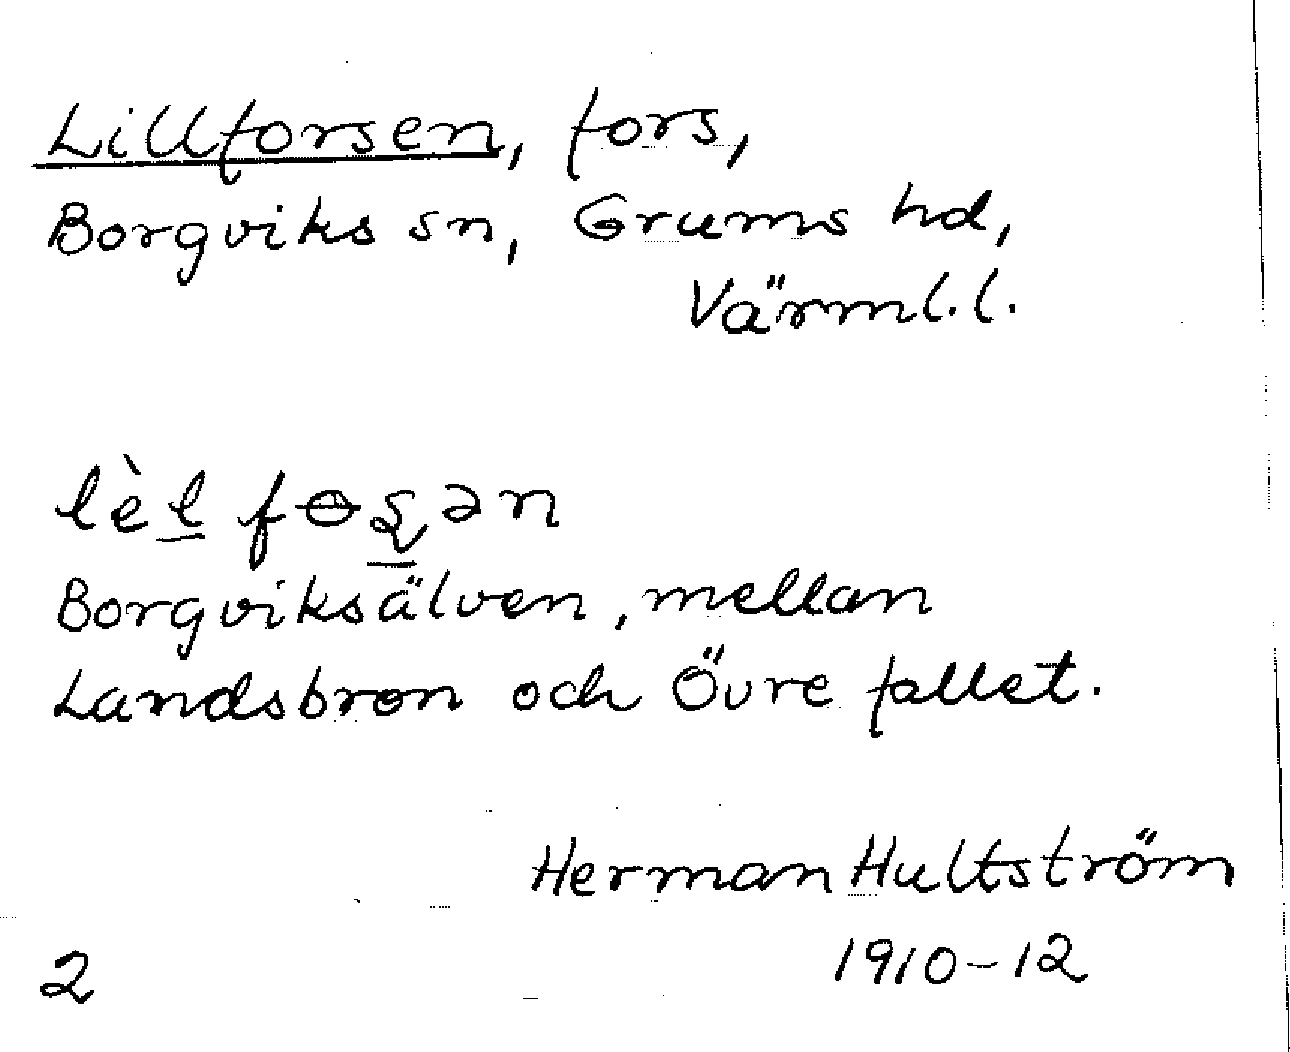 Lillforsen, fors,
Borgviks sn, Grums hd,
Värml.l.
lèl fɵʂən
Borgviksälven, mellan
Landsbron och Övre fallet.
Herman Hultström
1910-12
2